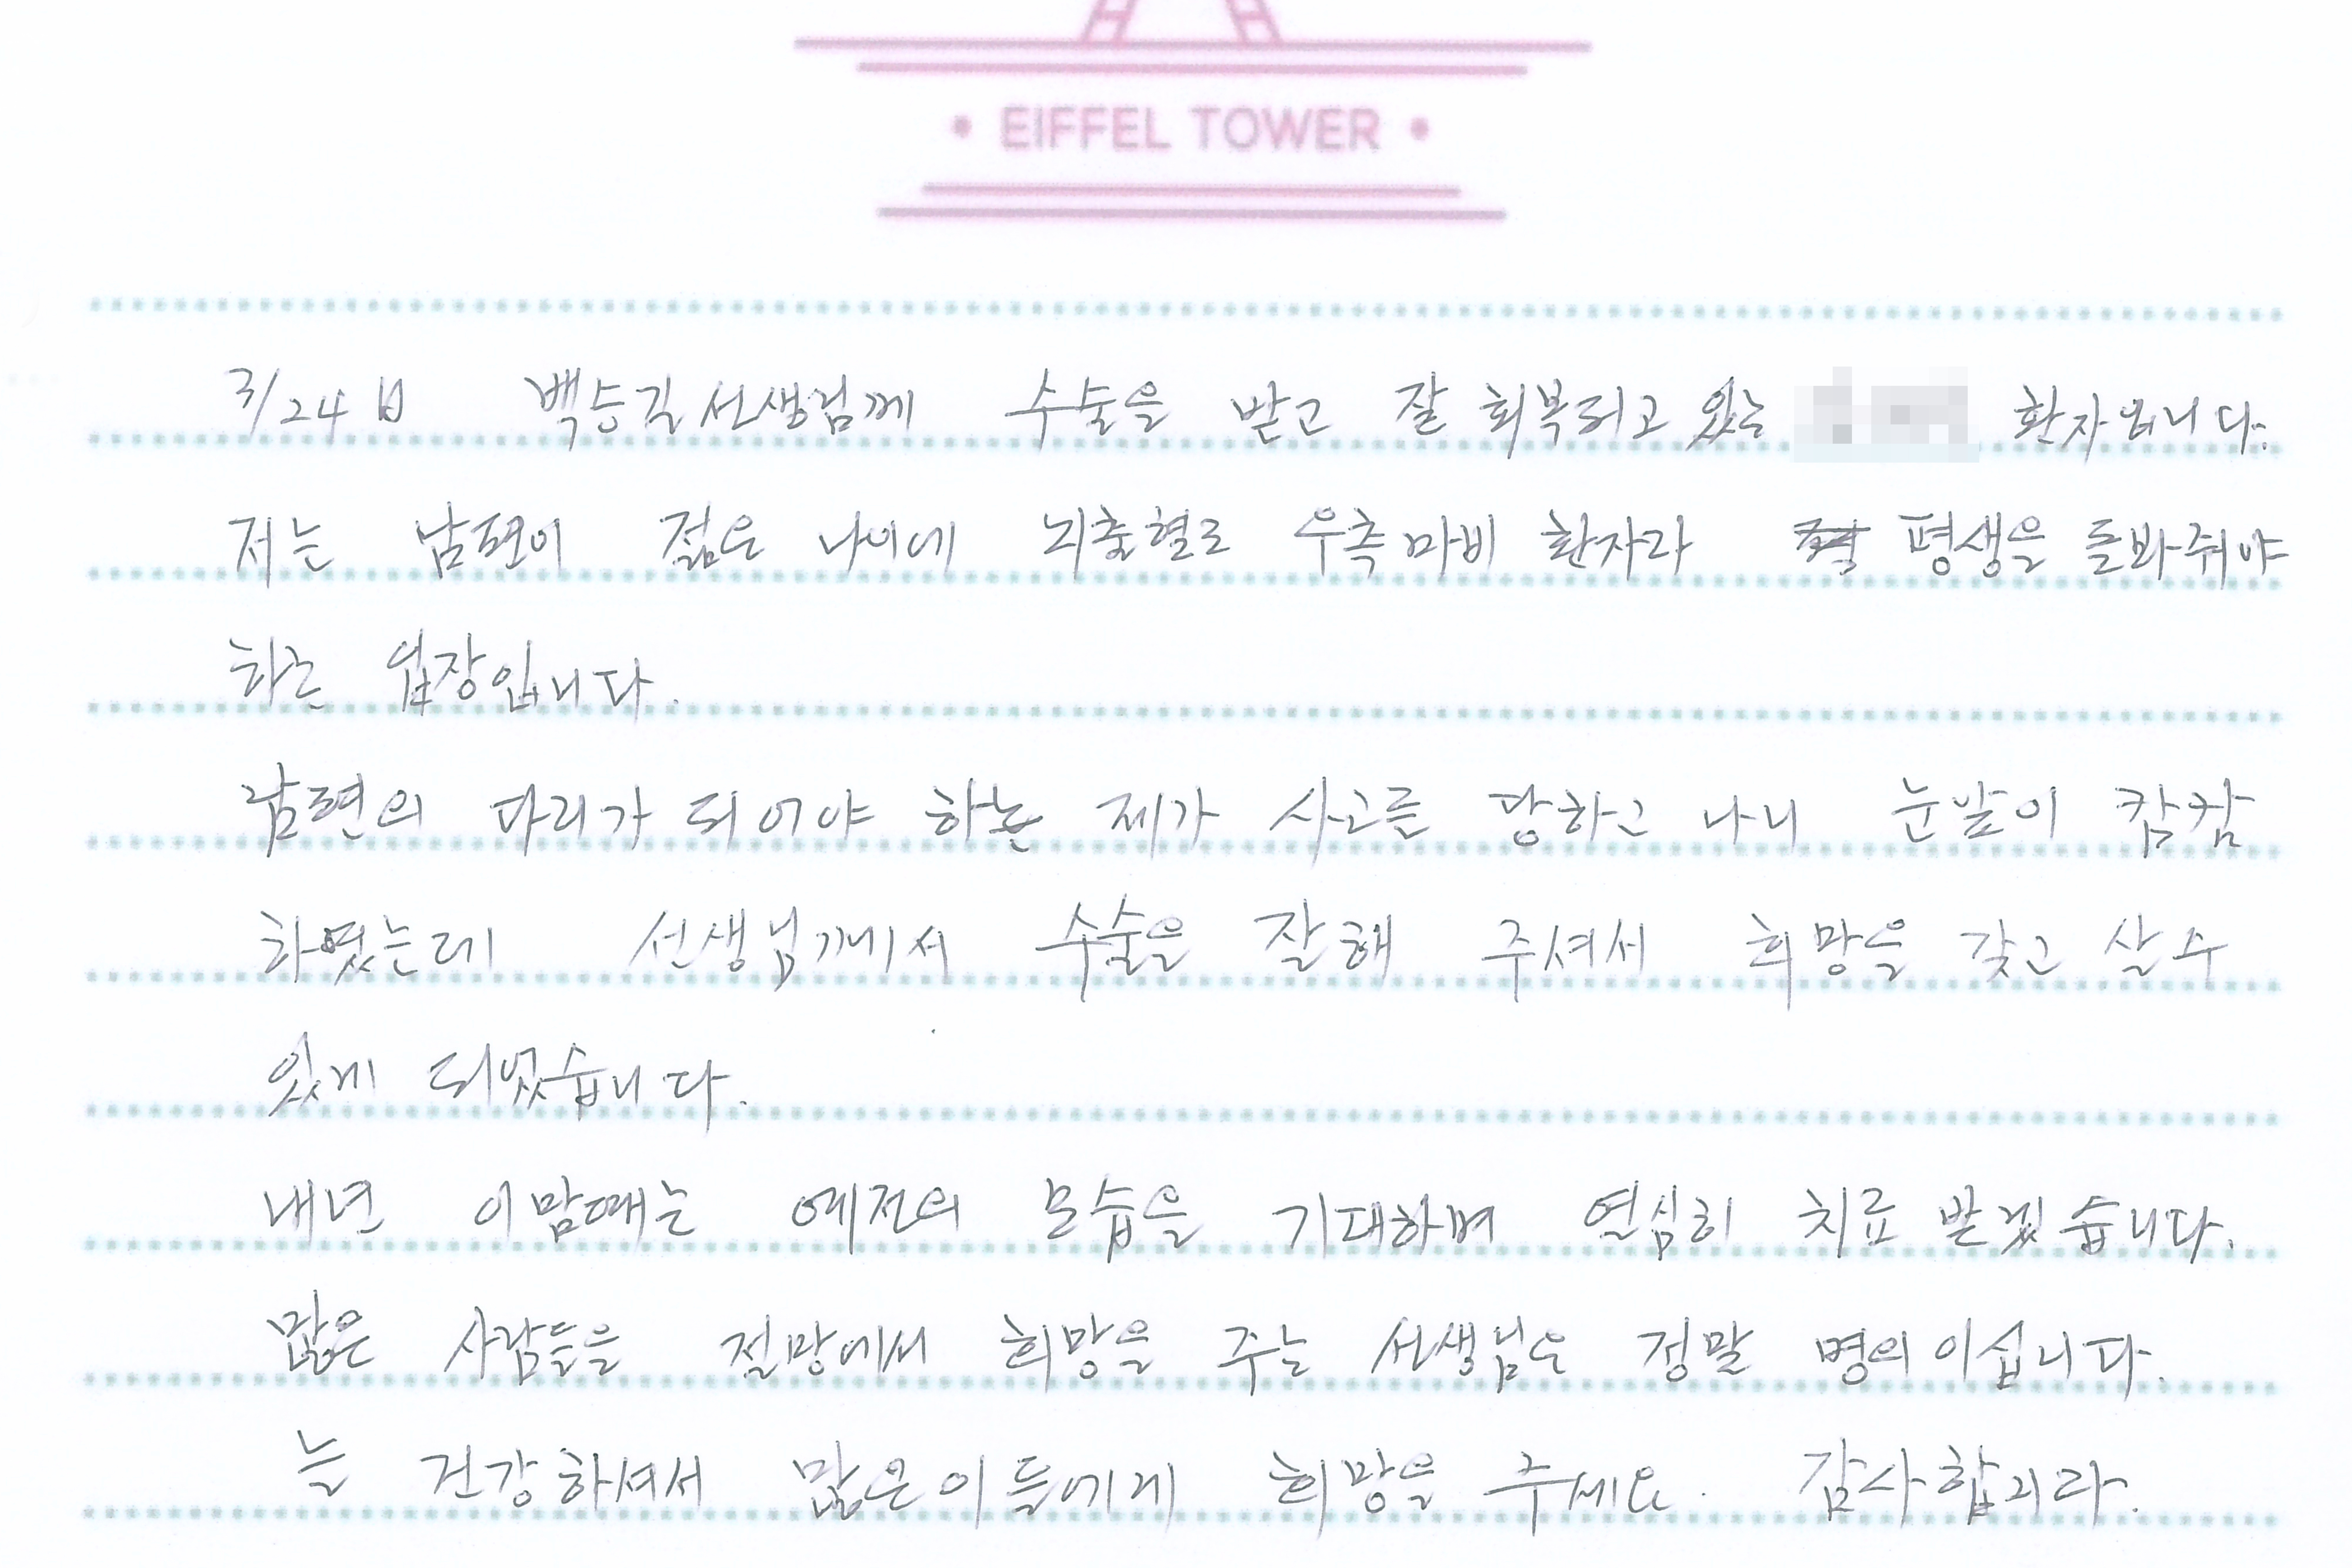 • EIFFEL TOWER •
3/24日 백승길선생님께 수술을 받고 잘 회복되고 있는 환자입니다.
저는 남편이 젊은 나이에 뇌출혈로 우측마비 환자라 평생을 돌봐줘야
하는 입장입니다.
남편의 다리가 되어야 하는 제가 사고를 당하고 나니 눈앞이 캄캄
하였는데 선생님께서 수술을 잘해 주셔서 희망을 갖고 살수
있게 되었습니다.
내년 이맘때는 예전의 모습을 기대하며 열심히 치료 받겠습니다.
많은 사람들을 절망에서 희망을 주는 선생님은 정말 명의이십니다.
늘 건강하셔서 많은이들에게 희망을 주세요. 감사합니다.